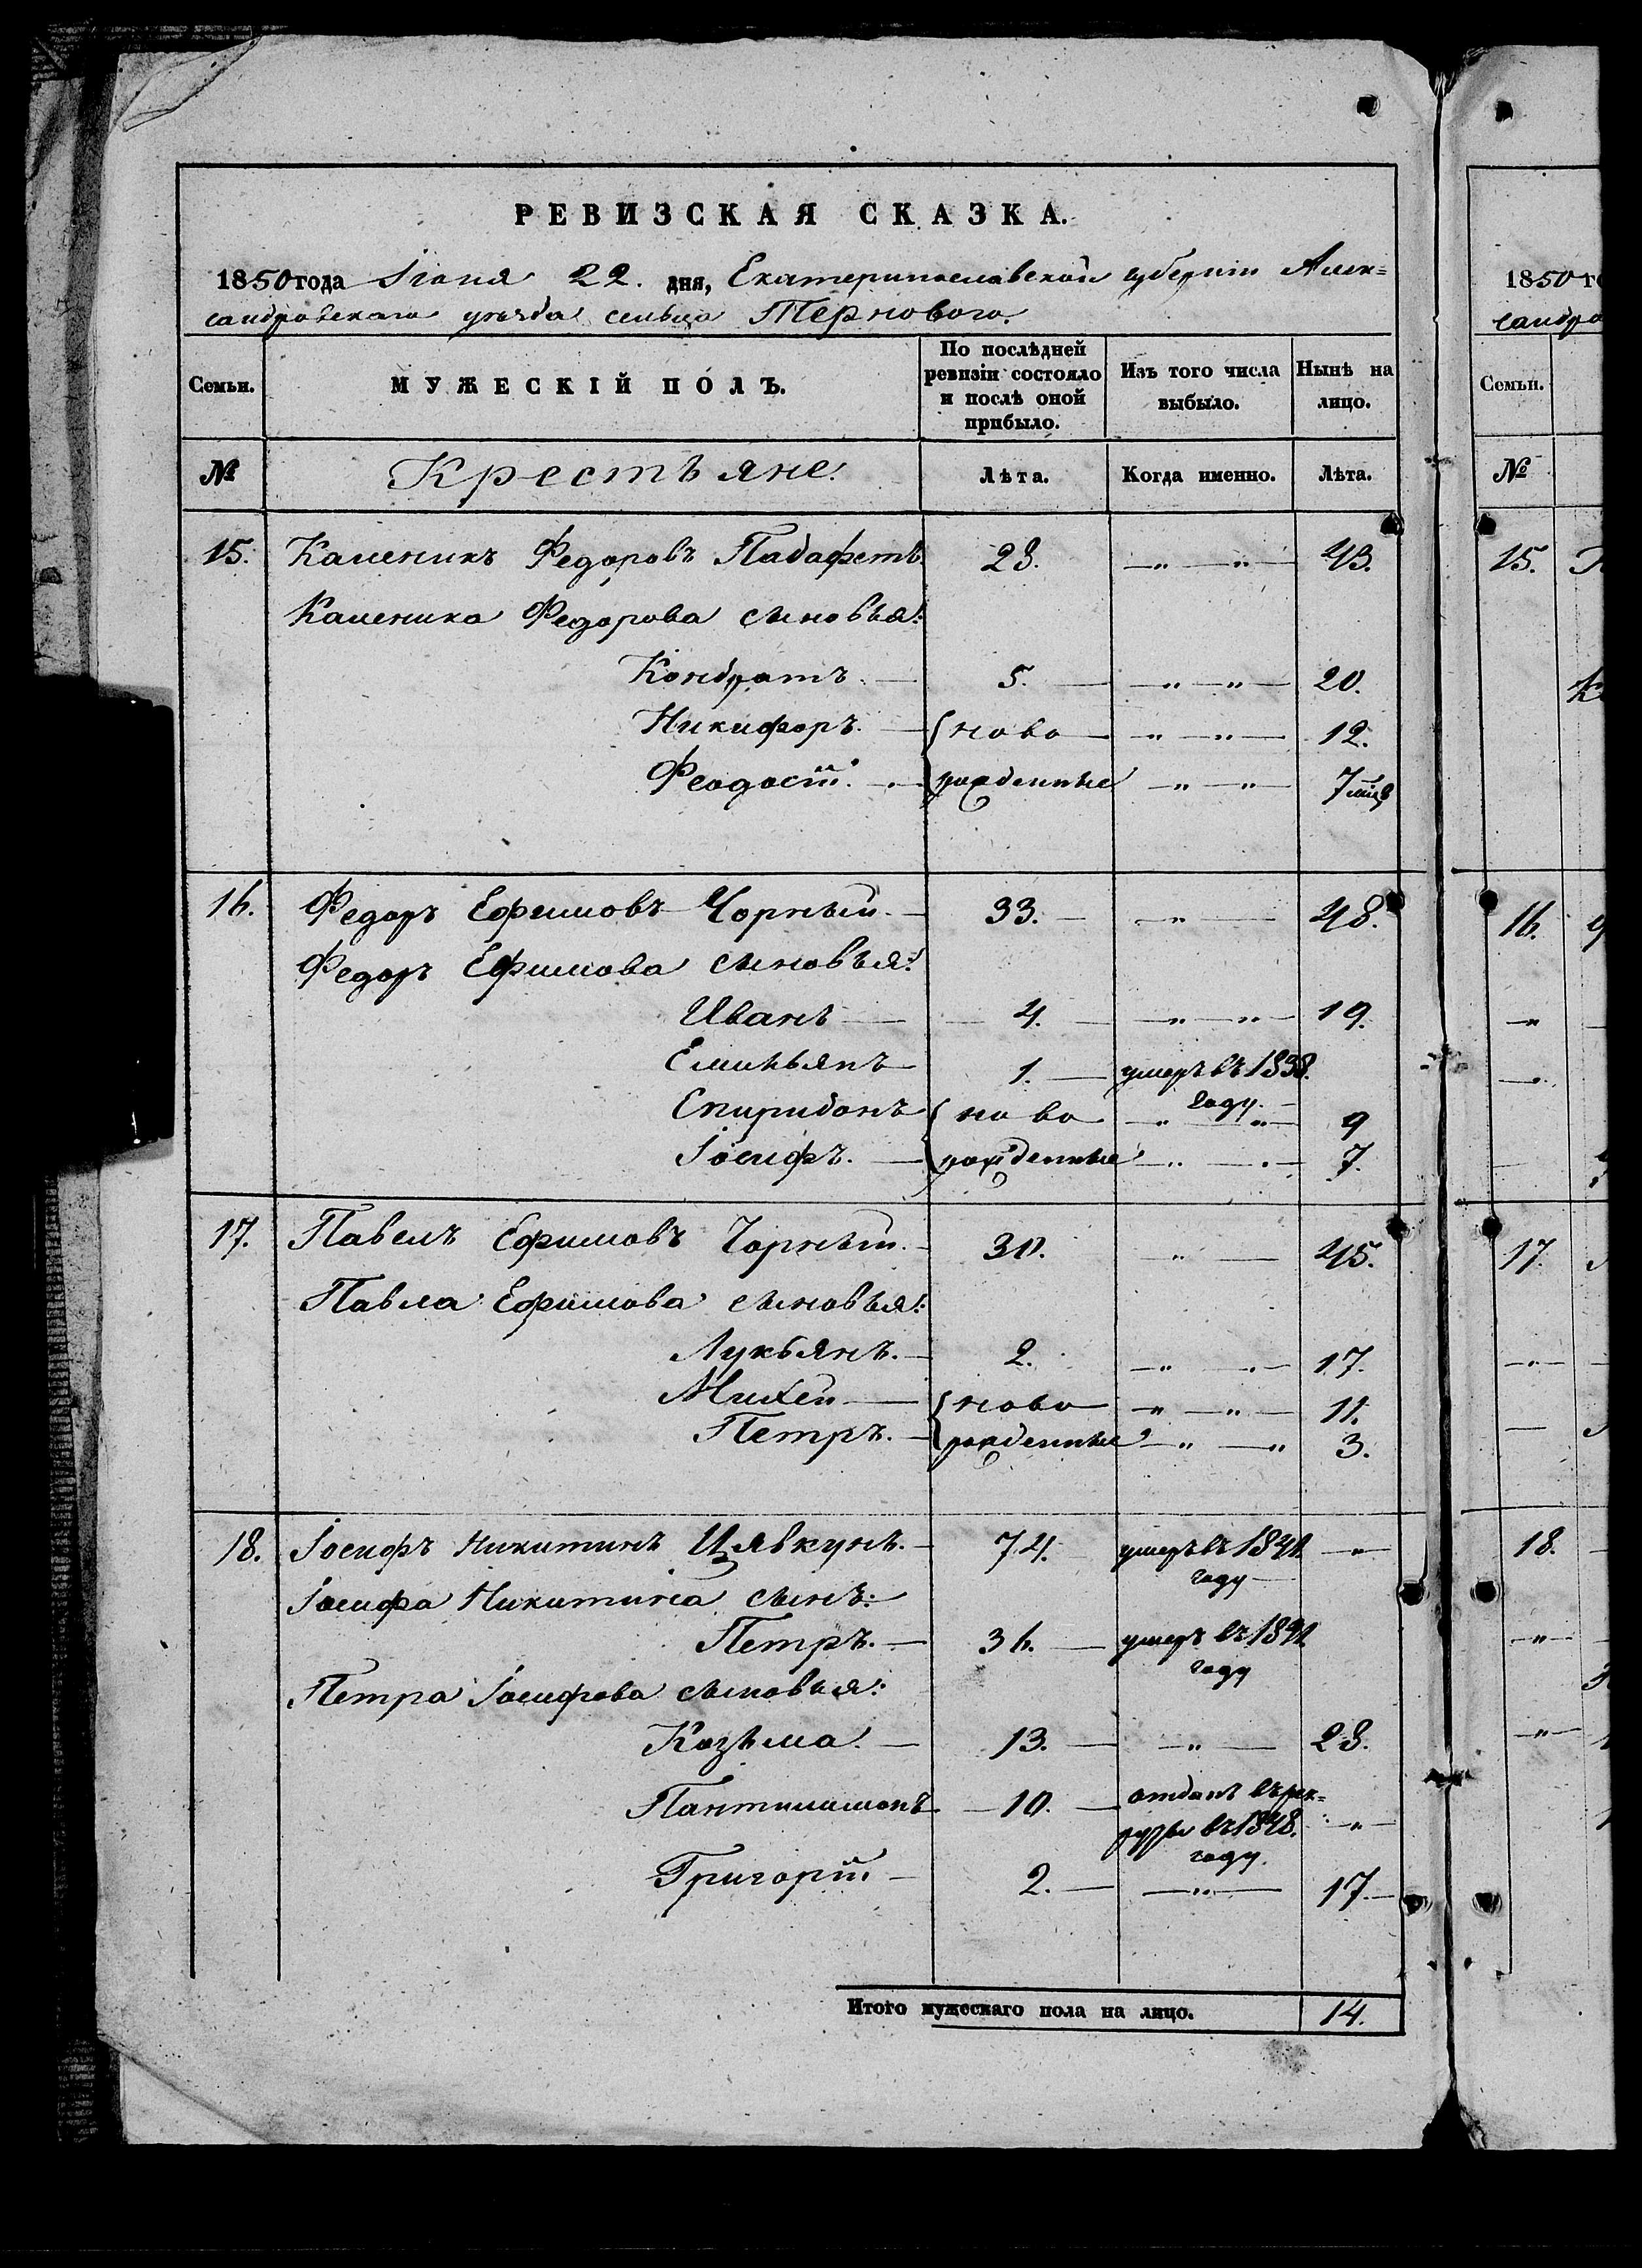 РЕВИЗСКАЯ СКАЗКА.
1850 года Іюня 22. дня, Екатеринославской губерніи Алек=
сандровскаго уѣзда сельца Терноваго.
Семьи. МУЖЕСКІЙ ПОЛЪ. По послѣдней ревизіи состояло и послѣ оной прибыло. Изъ того числа выбыло. Нынѣ на лицо.
№ Крестьяне. Лѣта. Когда именно. Лѣта.
15. Каленикъ Федоровъ 28. — „ — „ — 43.
Каленика Федорова сыновья:
Кондратъ. — 5. — „ — „ — 20.
Никифоръ. — ново — „ — „ — 12.
Феодосій. — рожденные — „ — „ 7 мцъ
16. Федоръ Ефимовъ Чорный. — 33. — „ — 48.
Федоръ Ефимова сыновья:
Иванъ — 4. — „ — „ — 19.
Емильянъ — 1. — умеръ въ 1838.
году. —
Спиридонъ ново — „ — „ — 9
Іосифъ. — рожденные — „ — „ — 7.
17. Павелъ Ефимовъ Чорный. — 30. „ — 45.
Павла Ефимова сыновья:
Лукьянъ. — 2. — „ — „ — 17.
Михей — ново — „ — „ — 11.
Петръ. — рожденные — „ — „ 3.
18. Іосифъ Никитинъ Цявкунъ. — 74. умеръ въ 1841 — „ —
году —
Іосифа Никитина сынъ:
Петръ. — 36. — умеръ въ 1841
году
Петра Іосифова сыновья:
Козьма. — 13. — „ — 28.
Пантилимонъ — 10. — отданъ въ рек=
руты въ 1848. — „ —
году.
Григорій — 2. — „ — 17. —
Итого мужескаго пола на лицо. 14.
1850
сандро
Семьи.
№
15.
16.
17.
18.